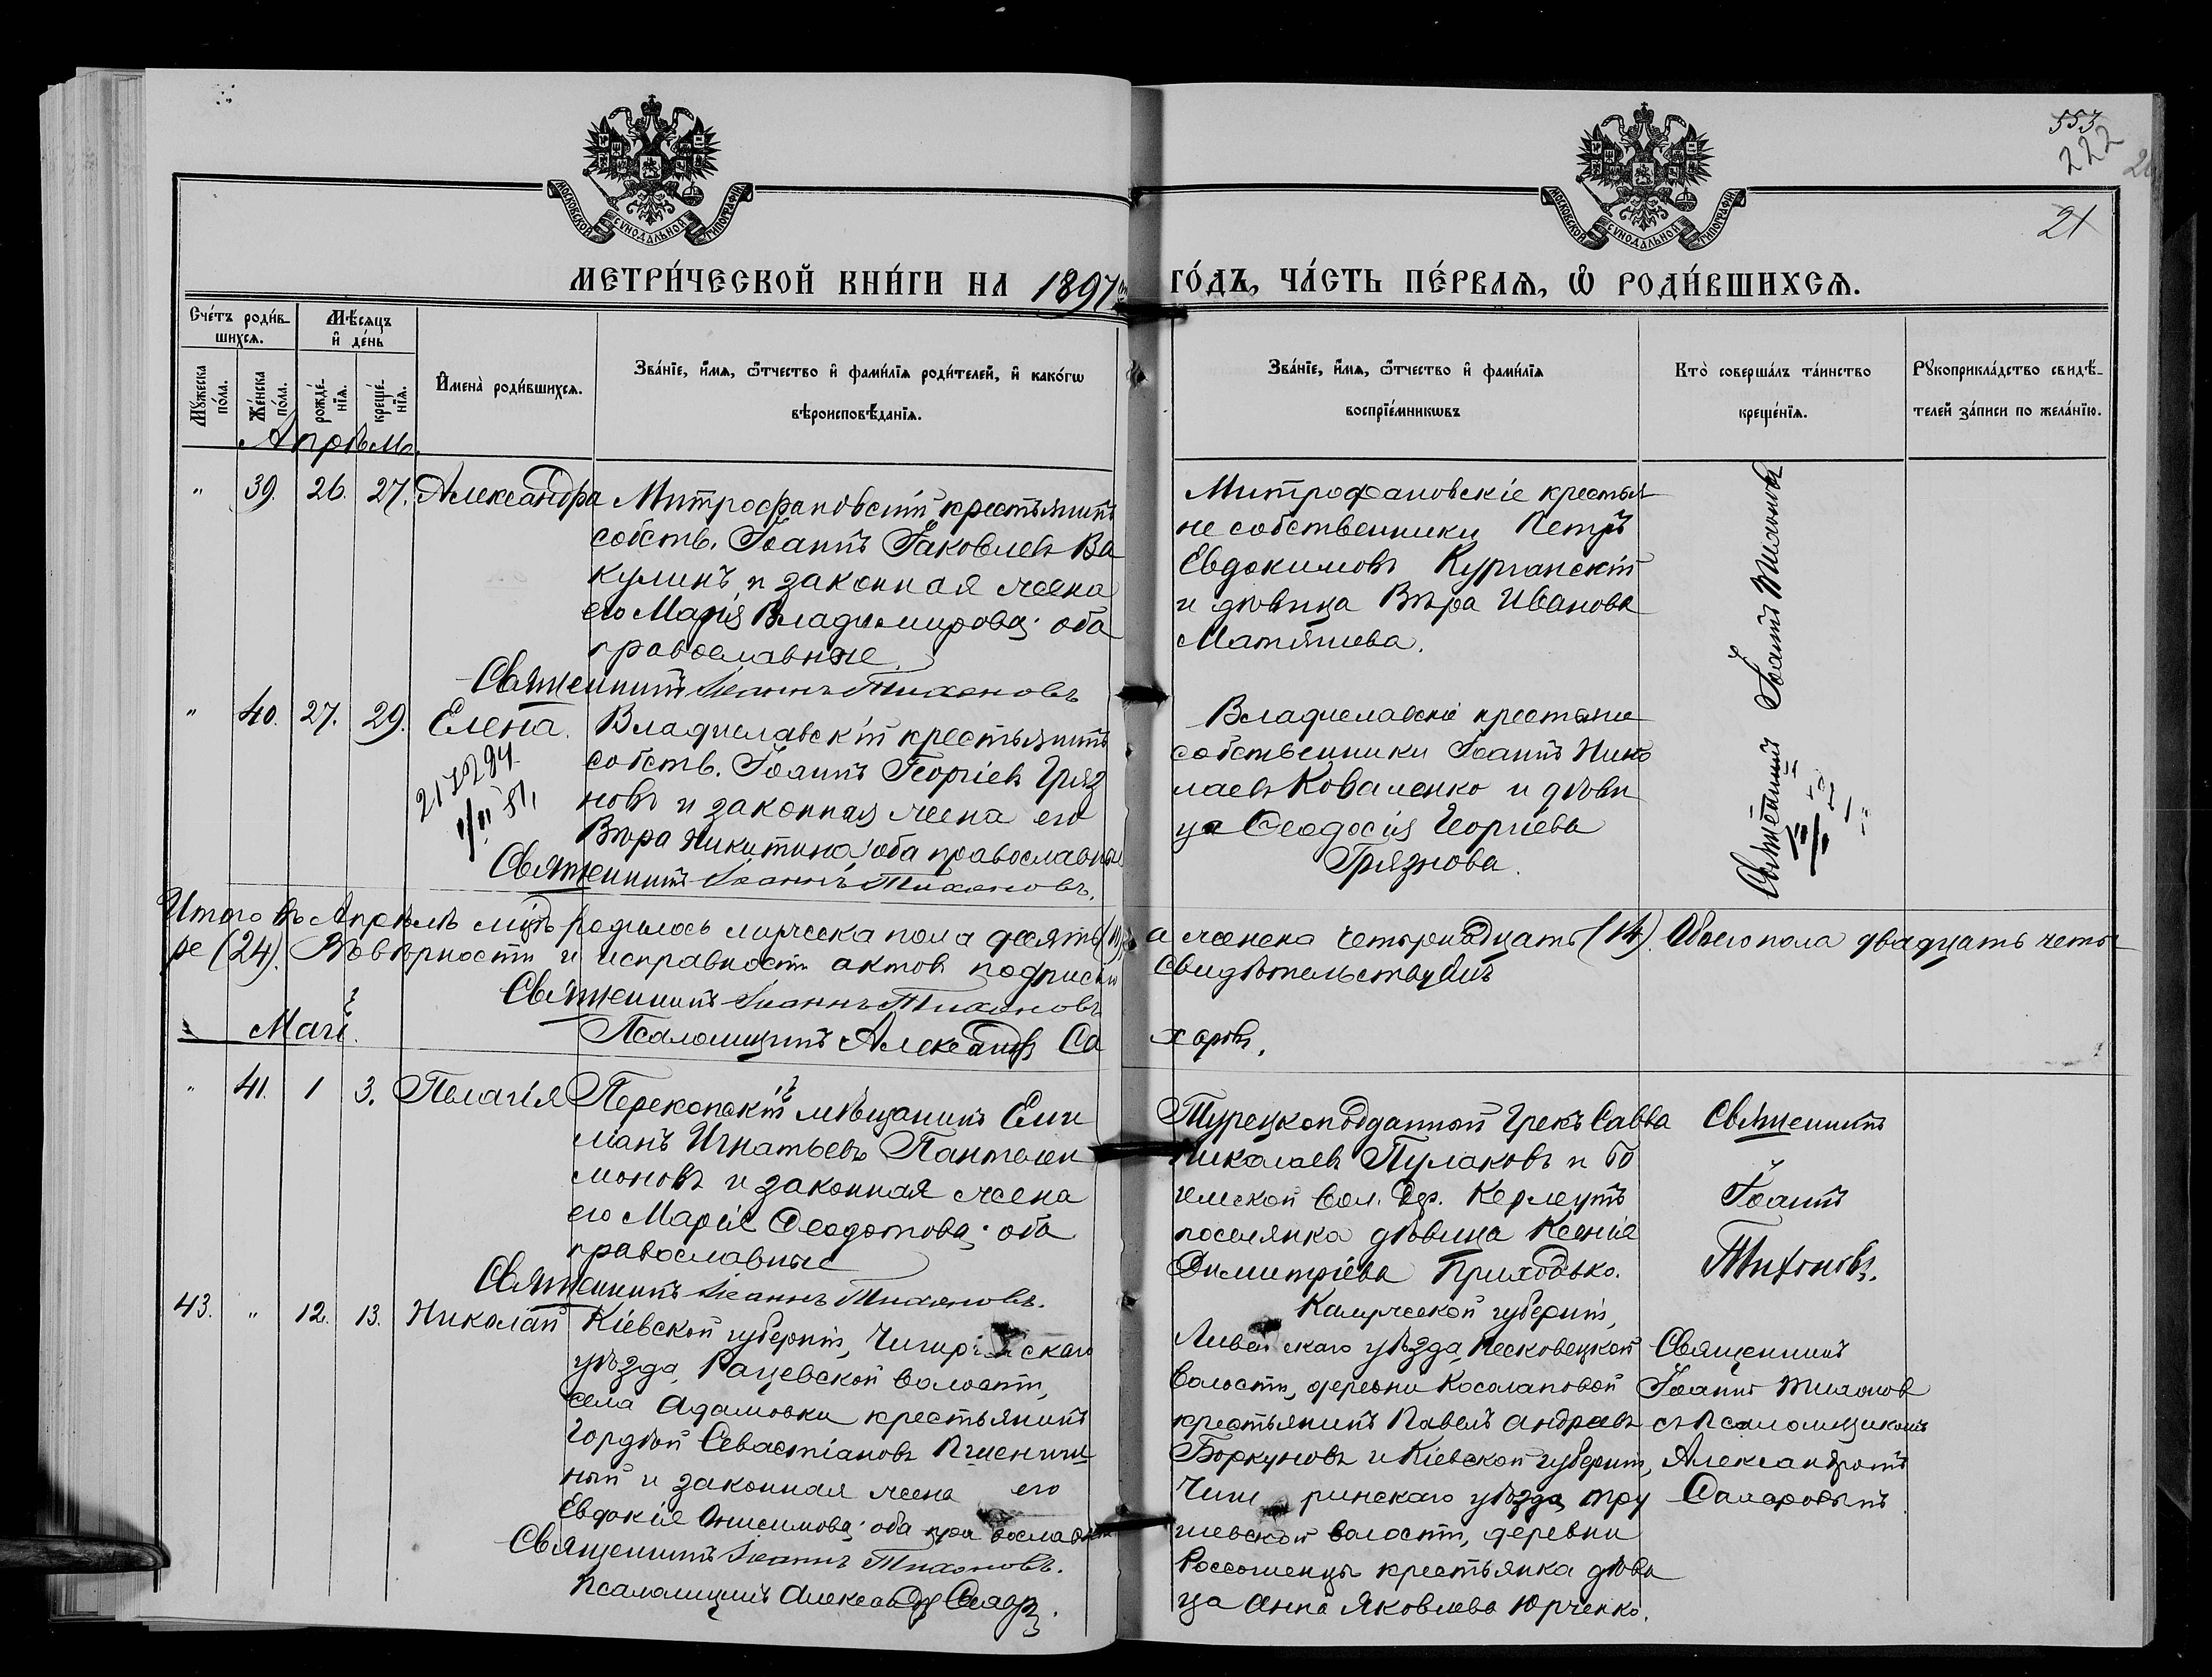 553
222
21
МОСКОВСКОЙ СѴНОДАЛЬНОЙ ТИПОГРАФІИ
МОСКОВСКОЙ СѴНОДАЛЬНОЙ ТИПОГРАФІИ
МЕТРИ́ЧЕСКОЙ КНИ́ГИ НА 1897 ГО́ДЪ, ЧА́СТЬ ПЕ́РВАѦ, Ѡ҆ РОДИ́ВШИХСѦ.
Сче́тъ роди́в-
шихсѧ.
Мужеска по́ла.
Же́нска по́ла.
Мѣ́сѧцъ и҆ де́нь
рожде́-нїѧ.
креще́-нїѧ.
И҆мена̀ роди́вшихсѧ.
Зва́нїе, и҆́мѧ, ѻ҆́тчество и҆ фами́лїѧ роди́телей, и҆ како́гѡ
вѣроисповѣ́данїѧ.
Зва́нїе, и҆́мѧ, ѻ҆́тчество и҆ фами́лїѧ
воспрїе́мникѡвъ
Кто̀ соверша́лъ та́инство
креще́нїѧ.
Рꙋкоприкла́дство свидѣ́-
телей за́писи по жела́нїю.
Апрѣль.
" 39. 26. 27. Александра
Митрофановскій крестьянинъ
собств. Іоаннъ Іаковлевъ Ва
кулинъ и законная жена
его Марія Владимирова; оба
православные.
Священникъ Іоаннъ Тихоновъ
Митрофановскіе крестья
не собственники Петръ
Евдокимовъ Курганскій
и дѣвица Вѣра Иванова
Матяшева.
Священникъ Іоаннъ Тихоновъ
" 40. 27. 29. Елена.
Владиславскій крестьянинъ
собств. Іоаннъ Георгіевъ Гряз
новъ и законная жена его
Вѣра Никитина; оба православные
Священникъ Іоаннъ Тихоновъ.
Владиславскіе крестьяне
собственники Іоаннъ Нико
лаевъ Коваленко и дѣви
ца Ѳеодосія Георгіева
Грязнова.
Итого въ Апрѣлѣ мцѣ родилось мужеска пола десять (10), а женска четырнадцать (14). Обоего пола двадцать четы
ре (24). Въ вѣрности и исправности актовъ подписью свидѣтельствуемъ
Священникъ Іоаннъ Тихоновъ
Псаломщикъ Александръ Са харовъ.
Май.
" 41. 1 3. Пелагія
Перекопскій мѣщанинъ Еми
ліанъ Игнатьевъ Пантелей
моновъ и законная жена
его Марія Ѳеодотова; оба
православные
Священникъ Іоаннъ Тихоновъ.
Турецкоподданный Грекъ Савва
Николаевъ Пулаковъ и Бо
гемской вол. дер. Керлеутъ
поселянка дѣвица Ксенія
Димитріева Приходько.
Священникъ
Іоаннъ
Тихоновъ.
43. " 12. 13. Николай
Кіевской губерніи, Чигиринскаго
уѣзда, Рацевской волости,
села Адамовки крестьянинъ
Гордѣй Севастіановъ Пшенич
ный и законная жена его
Евдокія Онисимова; оба православные
Священникъ Іоаннъ Тихоновъ.
Псаломщикъ Александръ Сахаровъ.
Калужской губерніи,
Ливенскаго уѣзда, Песковецкой
волости, деревни Косолаповой
крестьянинъ Павелъ Андреевъ
Боркуновъ и Кіевской губерніи,
Чигиринскаго уѣзда, Тру
шевской волости, деревни
Россошенцы крестьянка дѣви
ца Анна Яковлева Юрченко.
Священникъ
Іоаннъ Тихонов
съ псаломщикомъ
Александромъ
Сахаровымъ